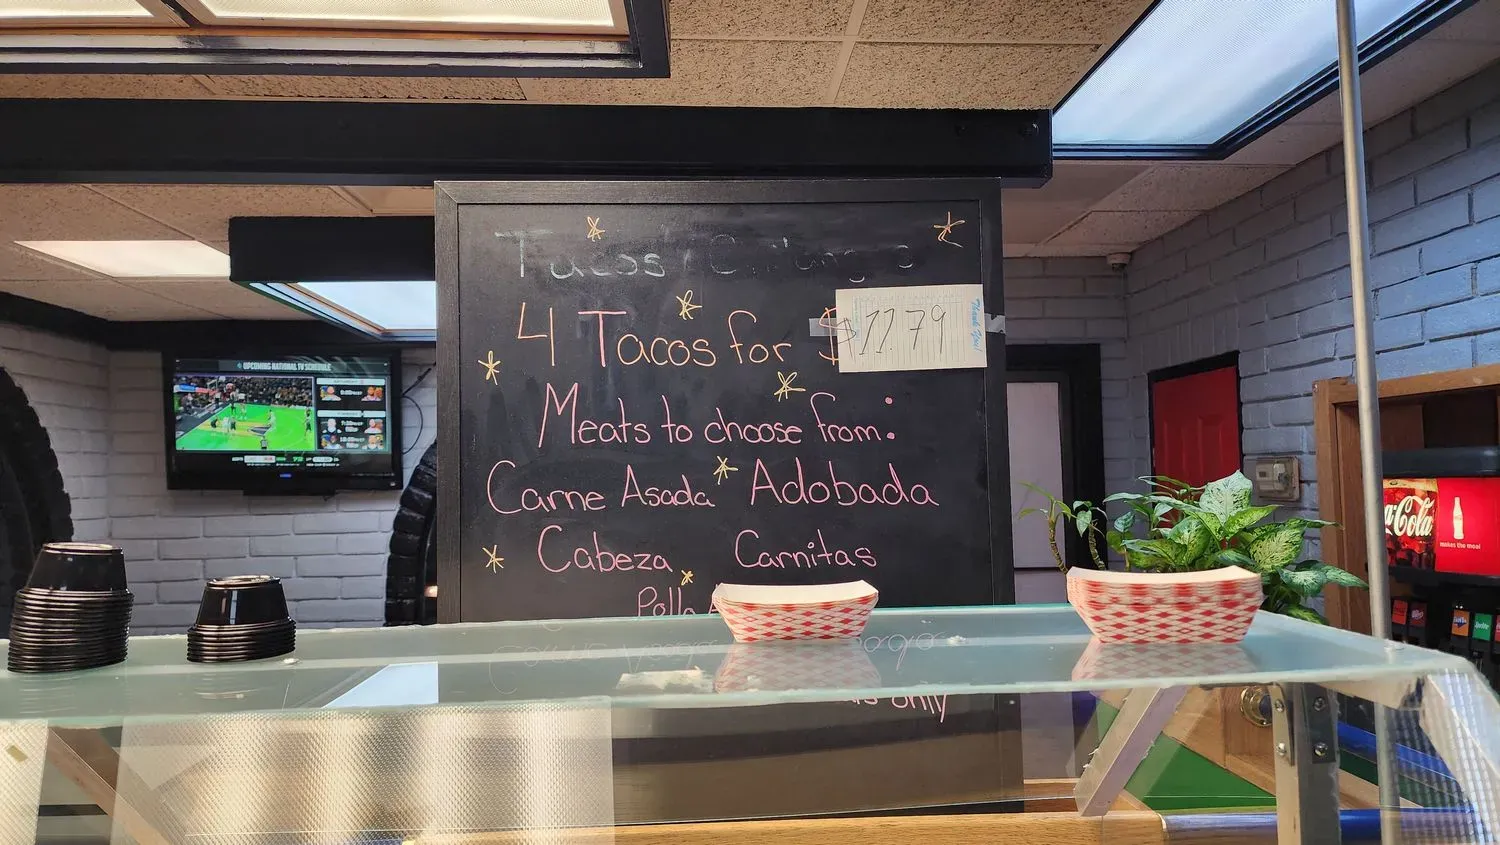 Tacos
4 Tacos for $
$11.79
Thank You!
Meats to choose from:
Carne Asada Adobada
Cabeza Carnitas
Pollo
only
UPCOMING NATIONAL TV SCHEDULE
Coca-Cola
makes the meal